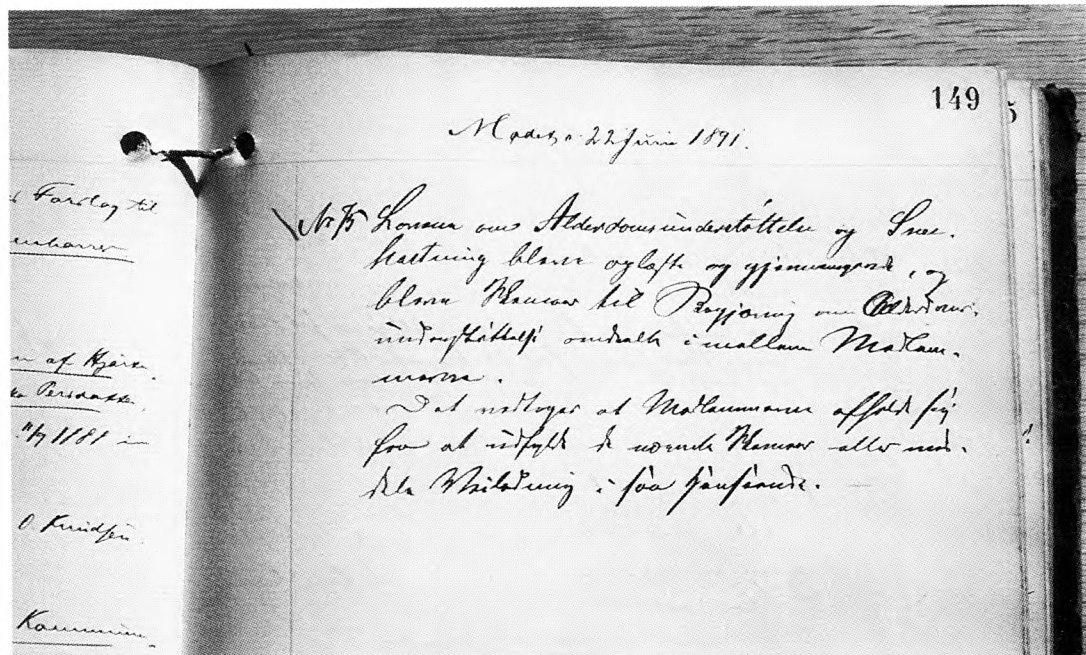 149
Mødet, 22 Juni 1891.
Nr 75 Lovene om Alderdomsunderstøttelse og Snee-
kastning bleve oplæste og gjennemgaaede, og
bleve Skemaer til Begjæring om Alderdoms-
understøttelse omdeelte imellem Medlem-
merne.
Det vedtoges at Medlemmerne afholdt sig
fra at udfylde de nævnte Skemaer eller med-
dele Veiledning i saa Henseende.
Forslag til
af
1881
O. Knudsen
Kommune